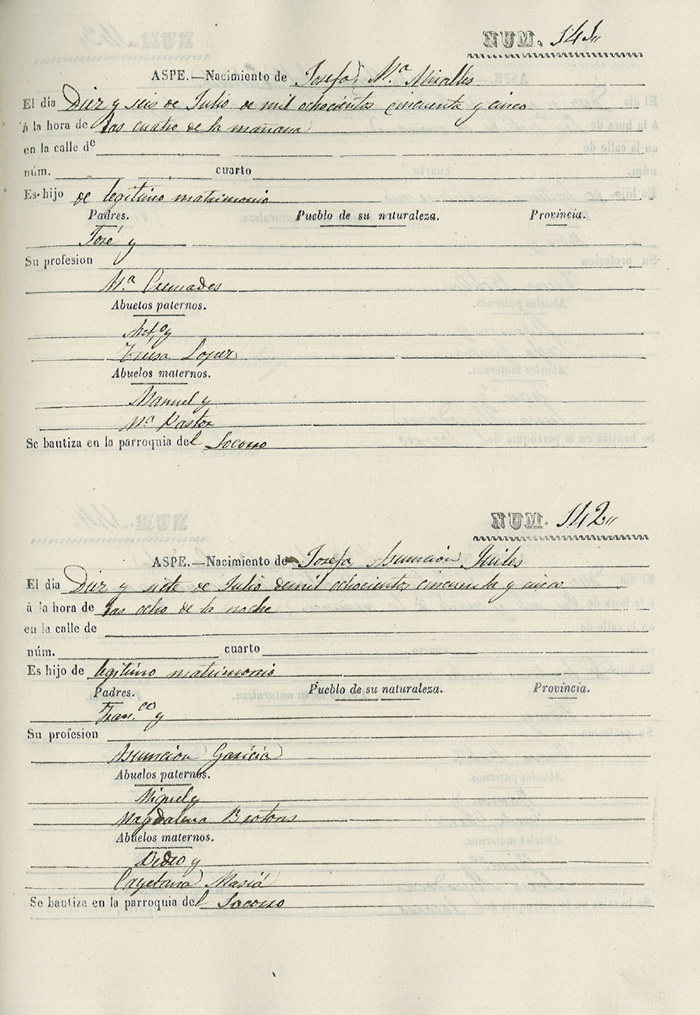 NUM. 141
ASPE.—Nacimiento de Josefa Mª Miralles
El día Diez y seis de Julio de mil ochocientos cincuenta y cinco
á la hora de las cuatro de la mañana
en la calle de
núm. cuarto
Es hijo de legitimo matrimonio
Padres. Pueblo de su naturaleza. Provincia.
José y
Su profesion
Mª Cremades
Abuelos paternos.
y
Teresa Lopez
Abuelos maternos.
Manuel y
Mª Pastor
Se bautiza en la parroquia del Socorro
NUM. 142
ASPE.—Nacimiento de Josefa Asuncion
El día Diez y siete de Julio de mil ochocientos cincuenta y cinco
á la hora de las ocho de la noche
en la calle de
núm. cuarto
Es hijo de legitimo matrimonio
Padres. Pueblo de su naturaleza. Provincia.
Fran.co y
Su profesion
Asuncion Garicia
Abuelos paternos.
Miguel y
Magdalena Brotons
Abuelos maternos.
Pedro y
Cayetana Masiá
Se bautiza en la parroquia del Socorro